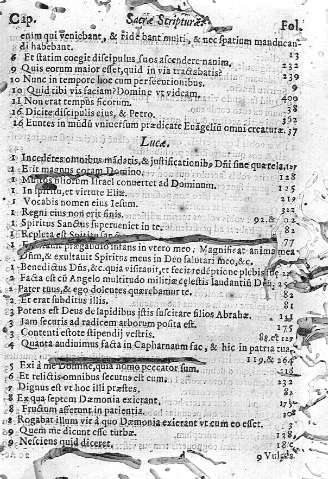 Cap. Sacræ Scripturæ. Fol.
enim qui veniebant, & rediebant multi, & nec spatium manducan-
di habebant. 13
6 Et statim coegit discipulos suos ascendere navim. 232
9 Quis eorum maior esset, quid in via tractabatis? 239
10 Nunc in tempore hoc cum persecutionibus. 9
10 Quid tibi vis faciam? Domine vt videam. 400
11 Non erat tempus ficorum. 38
16 Dicite discipulis eius, & Petro. 362
16 Euntes in mũdũ vniversum prædicate Evãgeliũ omni creaturæ. 37
Lucæ.
1 Incedẽtes omnibus mãdatis, & justificationibꝰ Dñi sine querela, 127
1 Erit magnus coram Domino. 128
1 Multos filiorum Israel convertet ad Dominum. 125
1 In spiritu, et virtute Eliæ. 219
1 Vocabis nomen eius Iesum. 322
1 Regni eius non erit finis. 92. &
1 Spiritus Sanctus superveniet in te. 82
1 Repleta est Spiritu 77
infans in vtero meo. Magnificat anima mea
& exultavit Spiritus meus in Deo salutari meo, &c.
1 Benedictus Dñs, &c. quia visitavit, et fecit redẽptionẽ plebis suæ
2 Facta est cũ Angelo multitudo militiæ cælestis laudantiũ Deũ.
2 Pater tuus, & ego dolentes quærebamur te. 82
2 Et erat subditus illis. 81
3 Potens est Deus de lapidibus istis suscitare filios Abrahæ.
3 Jam securis ad radicem arborum posita est. 175
3 Contenti estote stipendijs vestris. 88. et 117
4 Quanta audivimus facta in Capharnaum fac, & hic in patria tua,
119. & 264
5 Exi à me Domine, quia homo peccator sum. 116
5 Et relictis omnibus secuti sunt eum. 232
7 Dignus est vt hoc illi præstes. 82
8 Ex qua septem Dæmonia exierant,
8 Fructum afferunt in patientia.
8 Rogabat illum vir à quo Dæmonia exierant vt cum eo esset. 3
9 Quem me dicunt esse turbæ. 138
9 Nesciens quid diceret.
9 Vulpes